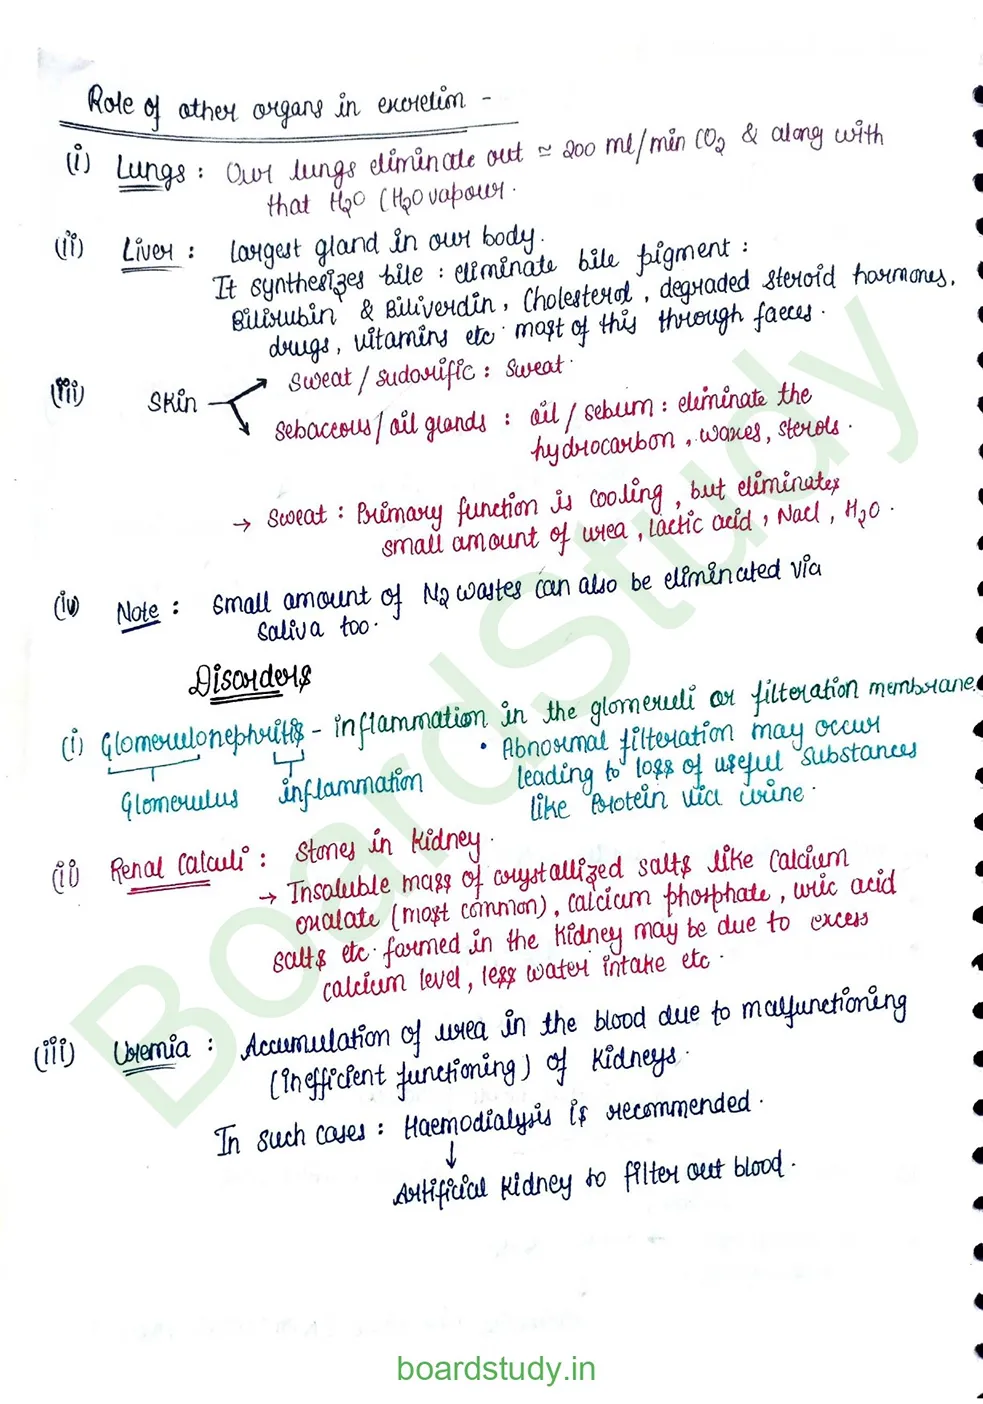 Role of other organs in excretion -
(i) Lungs : Our lungs eliminate out ≃ 200 ml/min CO2 & along with
that H2O (H2O vapour.
(ii) Liver : largest gland in our body.
It synthesizes bile : eliminate bile pigment :
Bilirubin & Biliverdin, Cholesterol, degraded steroid hormones,
drugs, vitamins etc. most of this through faeces.
(iii) Skin
Sweat / sudorific : Sweat.
Sebaceous / oil glands : oil / sebum : eliminate the
hydrocarbon, waxes, sterols.
→ Sweat : Primary function is cooling, but eliminates
small amount of urea, lactic acid, NaCl, H2O.
(iv) Note : Small amount of N2 wastes can also be eliminated via
saliva too.
Disorders
(i) Glomerulonephritis - inflammation in the glomeruli or filteration membrane.
• Abnormal filteration may occur
Glomerulus inflammation leading to loss of useful substances
like Protein via urine.
(ii) Renal Calculi : Stones in kidney.
→ Insoluble mass of crystallized salts like Calcium
oxalate (most common), calcium phosphate, uric acid
salts etc. formed in the kidney may be due to excess
calcium level, less water intake etc.
(iii) Uremia : Accumulation of urea in the blood due to malfunctioning
(inefficient functioning) of kidneys.
In such cases : Haemodialysis is recommended.
↓
Artificial kidney to filter out blood.
BoardStudy
boardstudy.in